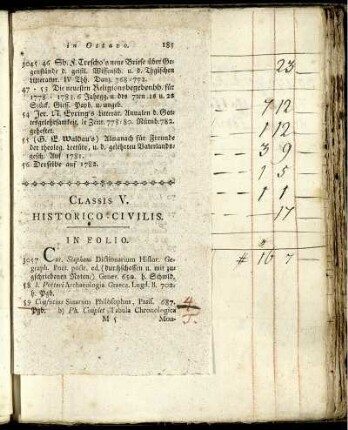 in Octavo. 185
3045 46 Sb. F. Trescho's neue Briefe über Ge-
genstände d. geistl. Wissensch. u. d. Thgischen
litteratur. IV Thh. Danz. 768-772.
47 - 53 Die neuesten Religionsbegebenhh. für
1778 - 1783. 6 Jahrgg. u. des 7ten 1s u. 2s
Stück. Giess. Papb. u. ungeb.
54 Jer. N. Eyring's litterar. Annalen d. Got-
tesgelehrsamkeit. 1e Zent. 778-82. Nürnb. 782.
geheftet.
55 (G. E. Waldau's) Almanach für Freunde
der theolog. lectüre, u. d. gelehrten Vaterlands-
gesch. Auf 1781.
56 Derselbe auf 1782.
CLASSIS V.
HISTORICO-CIVILIS.
IN FOLIO.
3057 Car. Stephani Dictionarium Histor. Ge-
graph. Poet. ed. (durchschossen u. mit zu-
geschriebenen Noten.) Genev. 650. h. Schwld.
58 J. Potteri Archaeologia Graeca. Lugd. B. 702.
h. Pgb.
59 Confucius Sinarum Philosophus, Paris. 687.
Pgb. b) Ph. Couplet Tabula Chronologica
M 5 Mon-
23
7 12
1 12
3 9
1 5
1 1
17
# 16 7